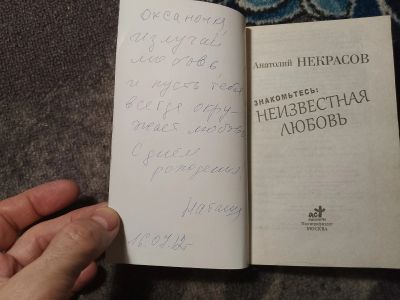 Оксаночка,
излучай
любовь
и пусть тебя
всегда окру-
жает любовь
С днём
рождения
Наташа
16.07.12г
Анатолий НЕКРАСОВ
ЗНАКОМЬТЕСЬ:
НЕИЗВЕСТНАЯ
ЛЮБОВЬ
аст
МОСКВА